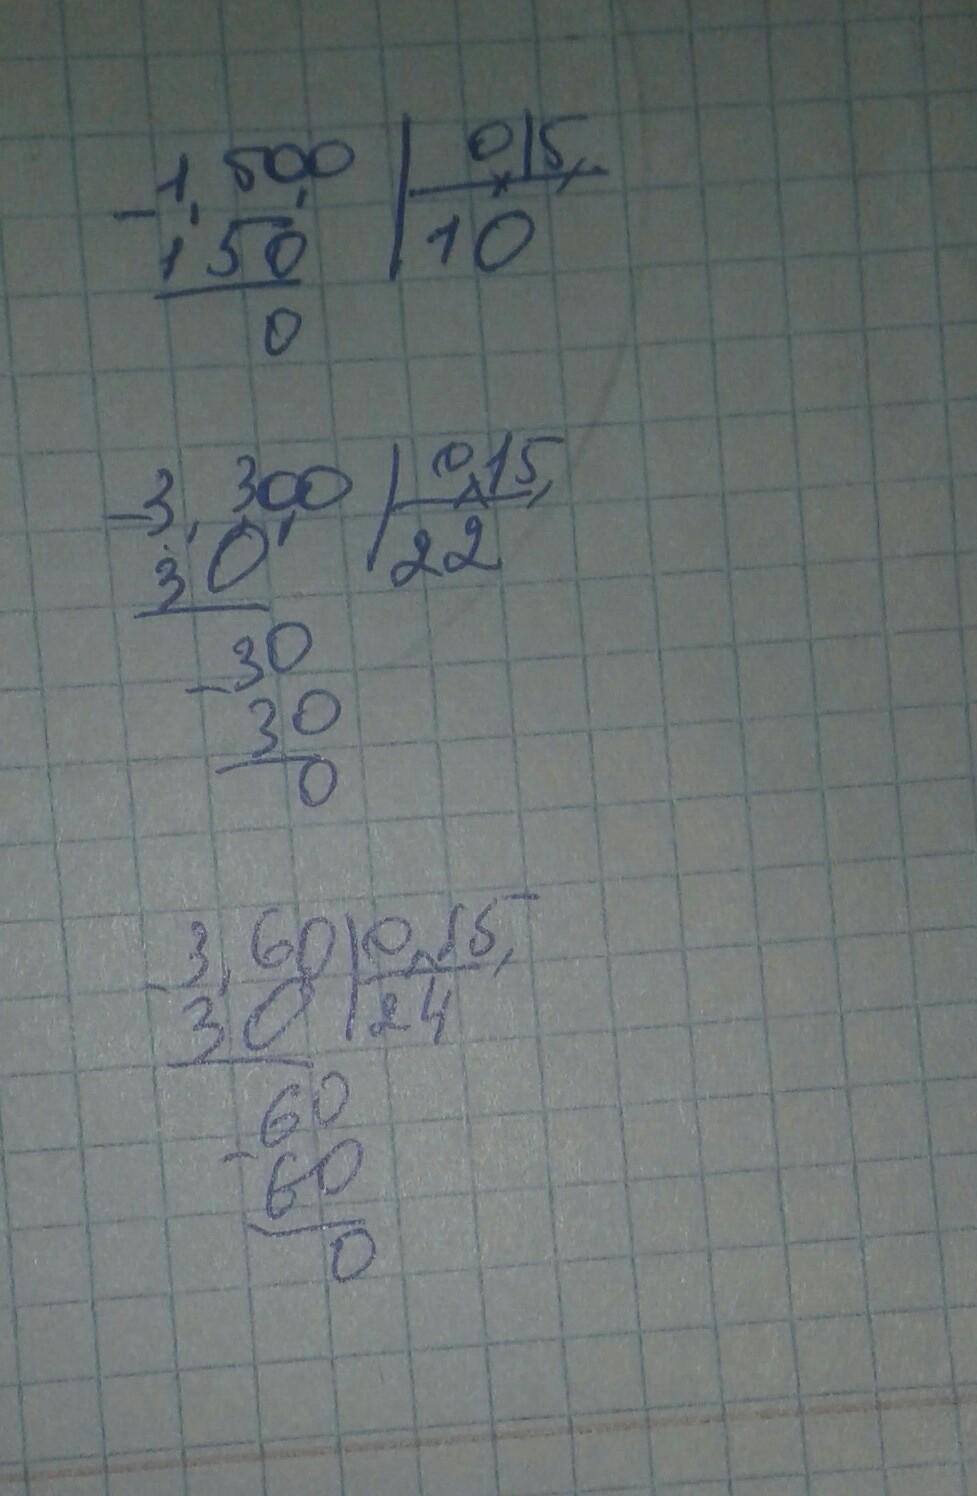 1,500, | 0,15,
- 150 | 10
0
- 3,300, | 0,15,
30 | 22
- 30
30
0
- 3,60 | 0,15,
30 | 24
- 60
60
0